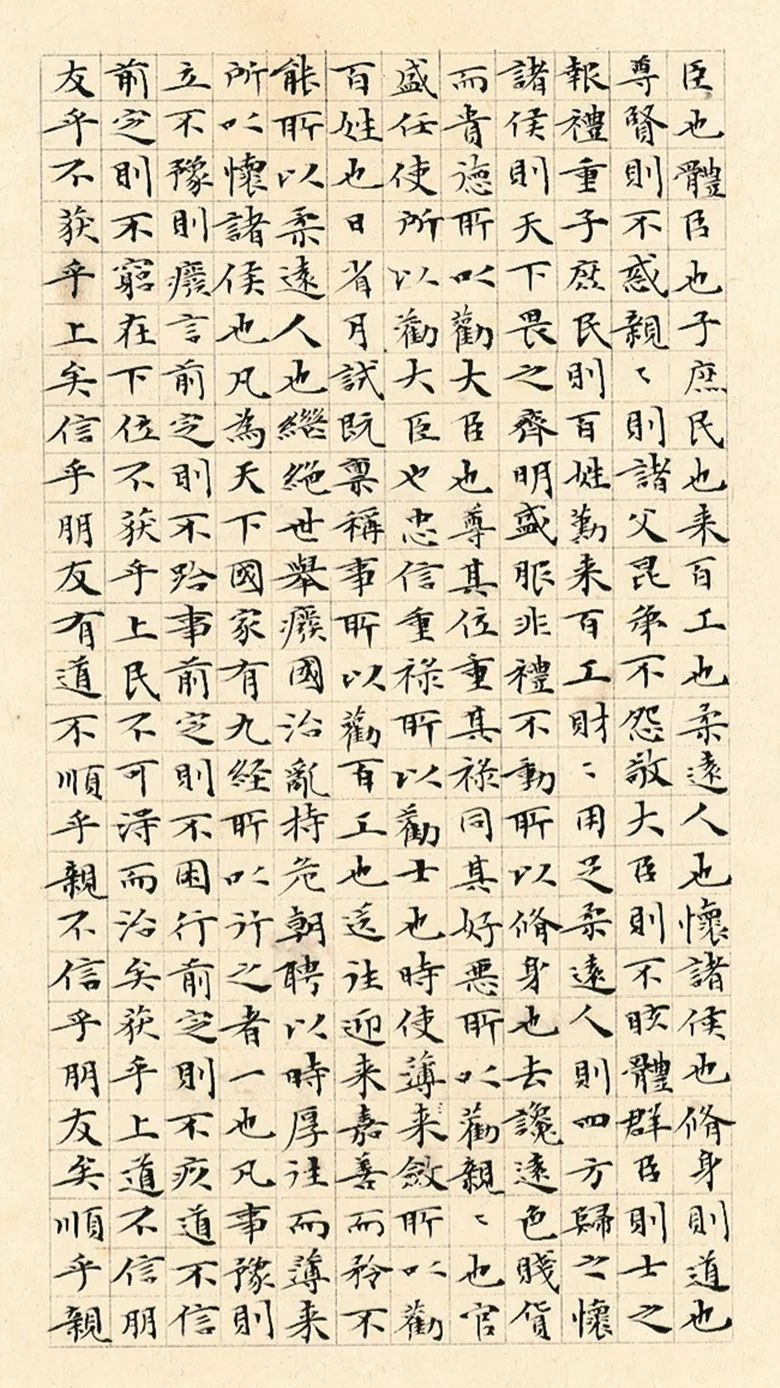 臣也體臣也子庶民也来百工也柔遠人也懷諸侯也脩身則道也
尊賢則不惑親〻則諸父昆弟不怨敬大臣則不眩體群臣則士之
報禮重子庶民則百姓勤来百工財〻用足柔遠人則四方歸之懷
諸侯則天下畏之齊明盛服非禮不動所以脩身也去讒遠色賤貨
而貴徳所以勸大臣也尊其位重其禄同其好惡所以勸親〻也官
盛任使所以勸大臣也忠信重禄所以勸士也時使薄来斂所以勸
百姓也日省月試既禀稱事所以勸百工也送往迎来嘉善而矜不
能所以柔遠人也繼絶世舉廢國治亂持危朝聘以時厚往而薄来
所以懷諸侯也凡為天下國家有九経所以行之者一也凡事豫則
立不豫則廢言前定則不跲事前定則不困行前定則不疚道不信
前定則不窮在下位不获乎上民不可得而治矣获乎上道不信朋
友乎不获乎上矣信乎朋友有道不順乎親不信乎朋友矣順乎親